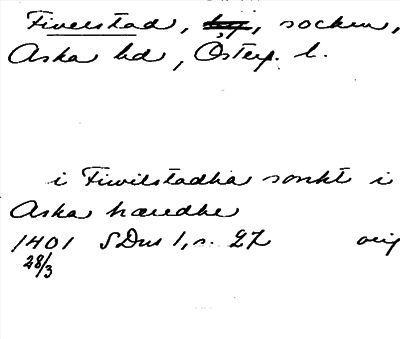 Fivelstad, socken,
Aska hd, Österg. l.
i Fiwilstadha sonkt i
Aska hæredhe
1401 SDns 1, s. 27 orig
28/3